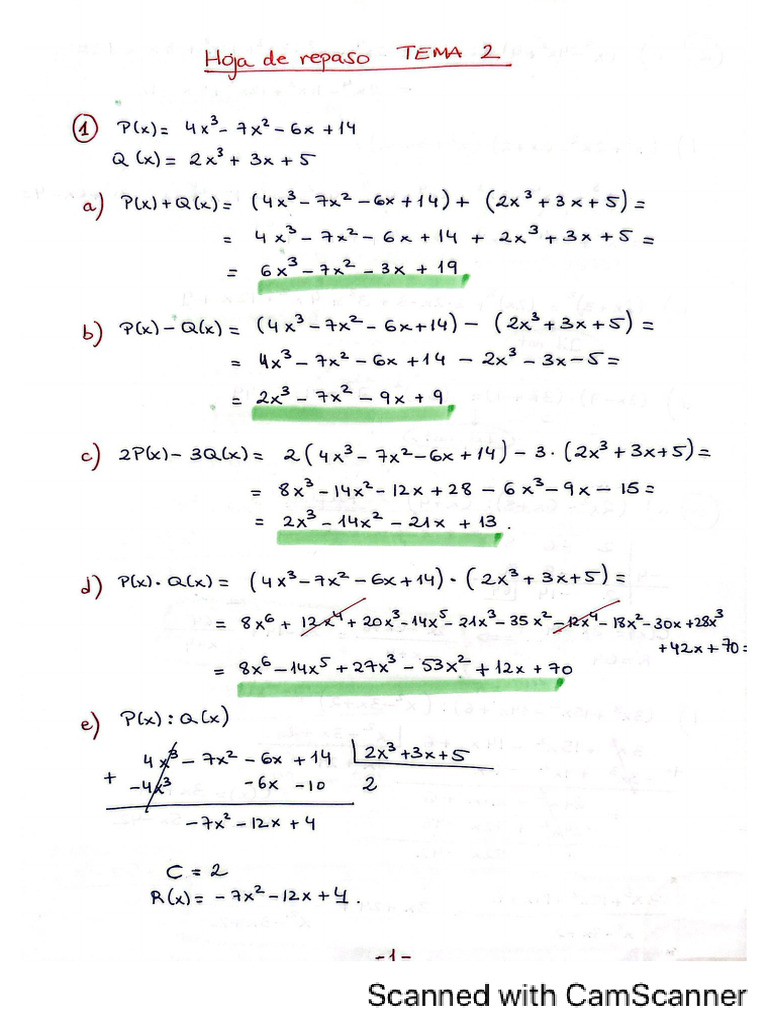 Hoja de repaso TEMA 2
① P(x) = 4x³ - 7x² - 6x + 14
Q(x) = 2x³ + 3x + 5
a) P(x) + Q(x) = (4x³ - 7x² - 6x + 14) + (2x³ + 3x + 5) =
= 4x³ - 7x² - 6x + 14 + 2x³ + 3x + 5 =
= 6x³ - 7x² - 3x + 19
b) P(x) - Q(x) = (4x³ - 7x² - 6x + 14) - (2x³ + 3x + 5) =
= 4x³ - 7x² - 6x + 14 - 2x³ - 3x - 5 =
= 2x³ - 7x² - 9x + 9
c) 2P(x) - 3Q(x) = 2(4x³ - 7x² - 6x + 14) - 3·(2x³ + 3x + 5) =
= 8x³ - 14x² - 12x + 28 - 6x³ - 9x - 15 =
= 2x³ - 14x² - 21x + 13.
d) P(x)·Q(x) = (4x³ - 7x² - 6x + 14)·(2x³ + 3x + 5) =
= 8x⁶ + 12x⁴ + 20x³ - 14x⁵ - 21x³ - 35x² - 12x⁴ - 18x² - 30x + 28x³
+ 42x + 70 =
= 8x⁶ - 14x⁵ + 27x³ - 53x² + 12x + 70
e) P(x) : Q(x)
4x³ - 7x² - 6x + 14 | 2x³ + 3x + 5
+ -4x³ - 6x - 10 2
-7x² - 12x + 4
C = 2
R(x) = -7x² - 12x + 4.
-1-
Scanned with CamScanner